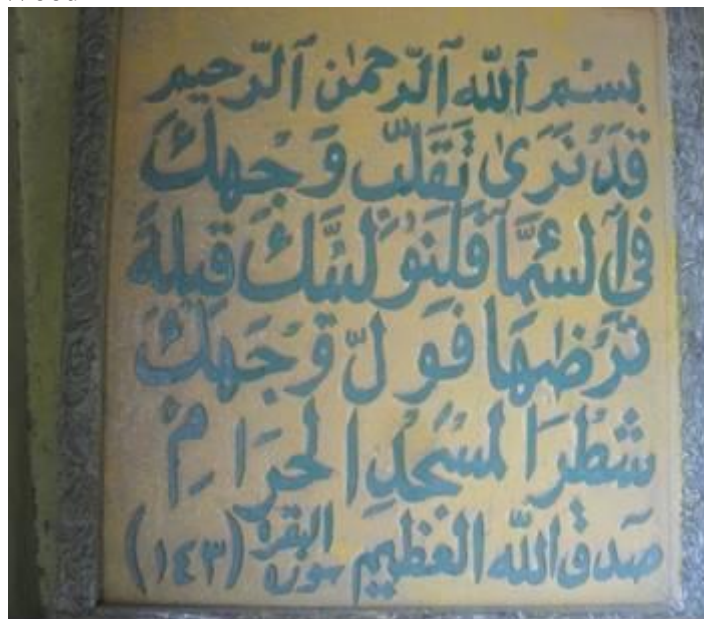 بسم ٱللّه ٱلرّحمٰن ٱلرّحيم
قَدْ نَرَىٰ تَقَلُّب وَجْهكَ
فِى ٱلسَّمَآ فَلَنُوَلِّيَنَّكَ قبلةً
تَرْضٰهَا فَوَلّ وَجْهَكَ
شَطْرَ الْمَسْجِدِ الْحَرَامِ
صَدَقَ اللّه العَظِيم سورة البقرة (١٤٣)